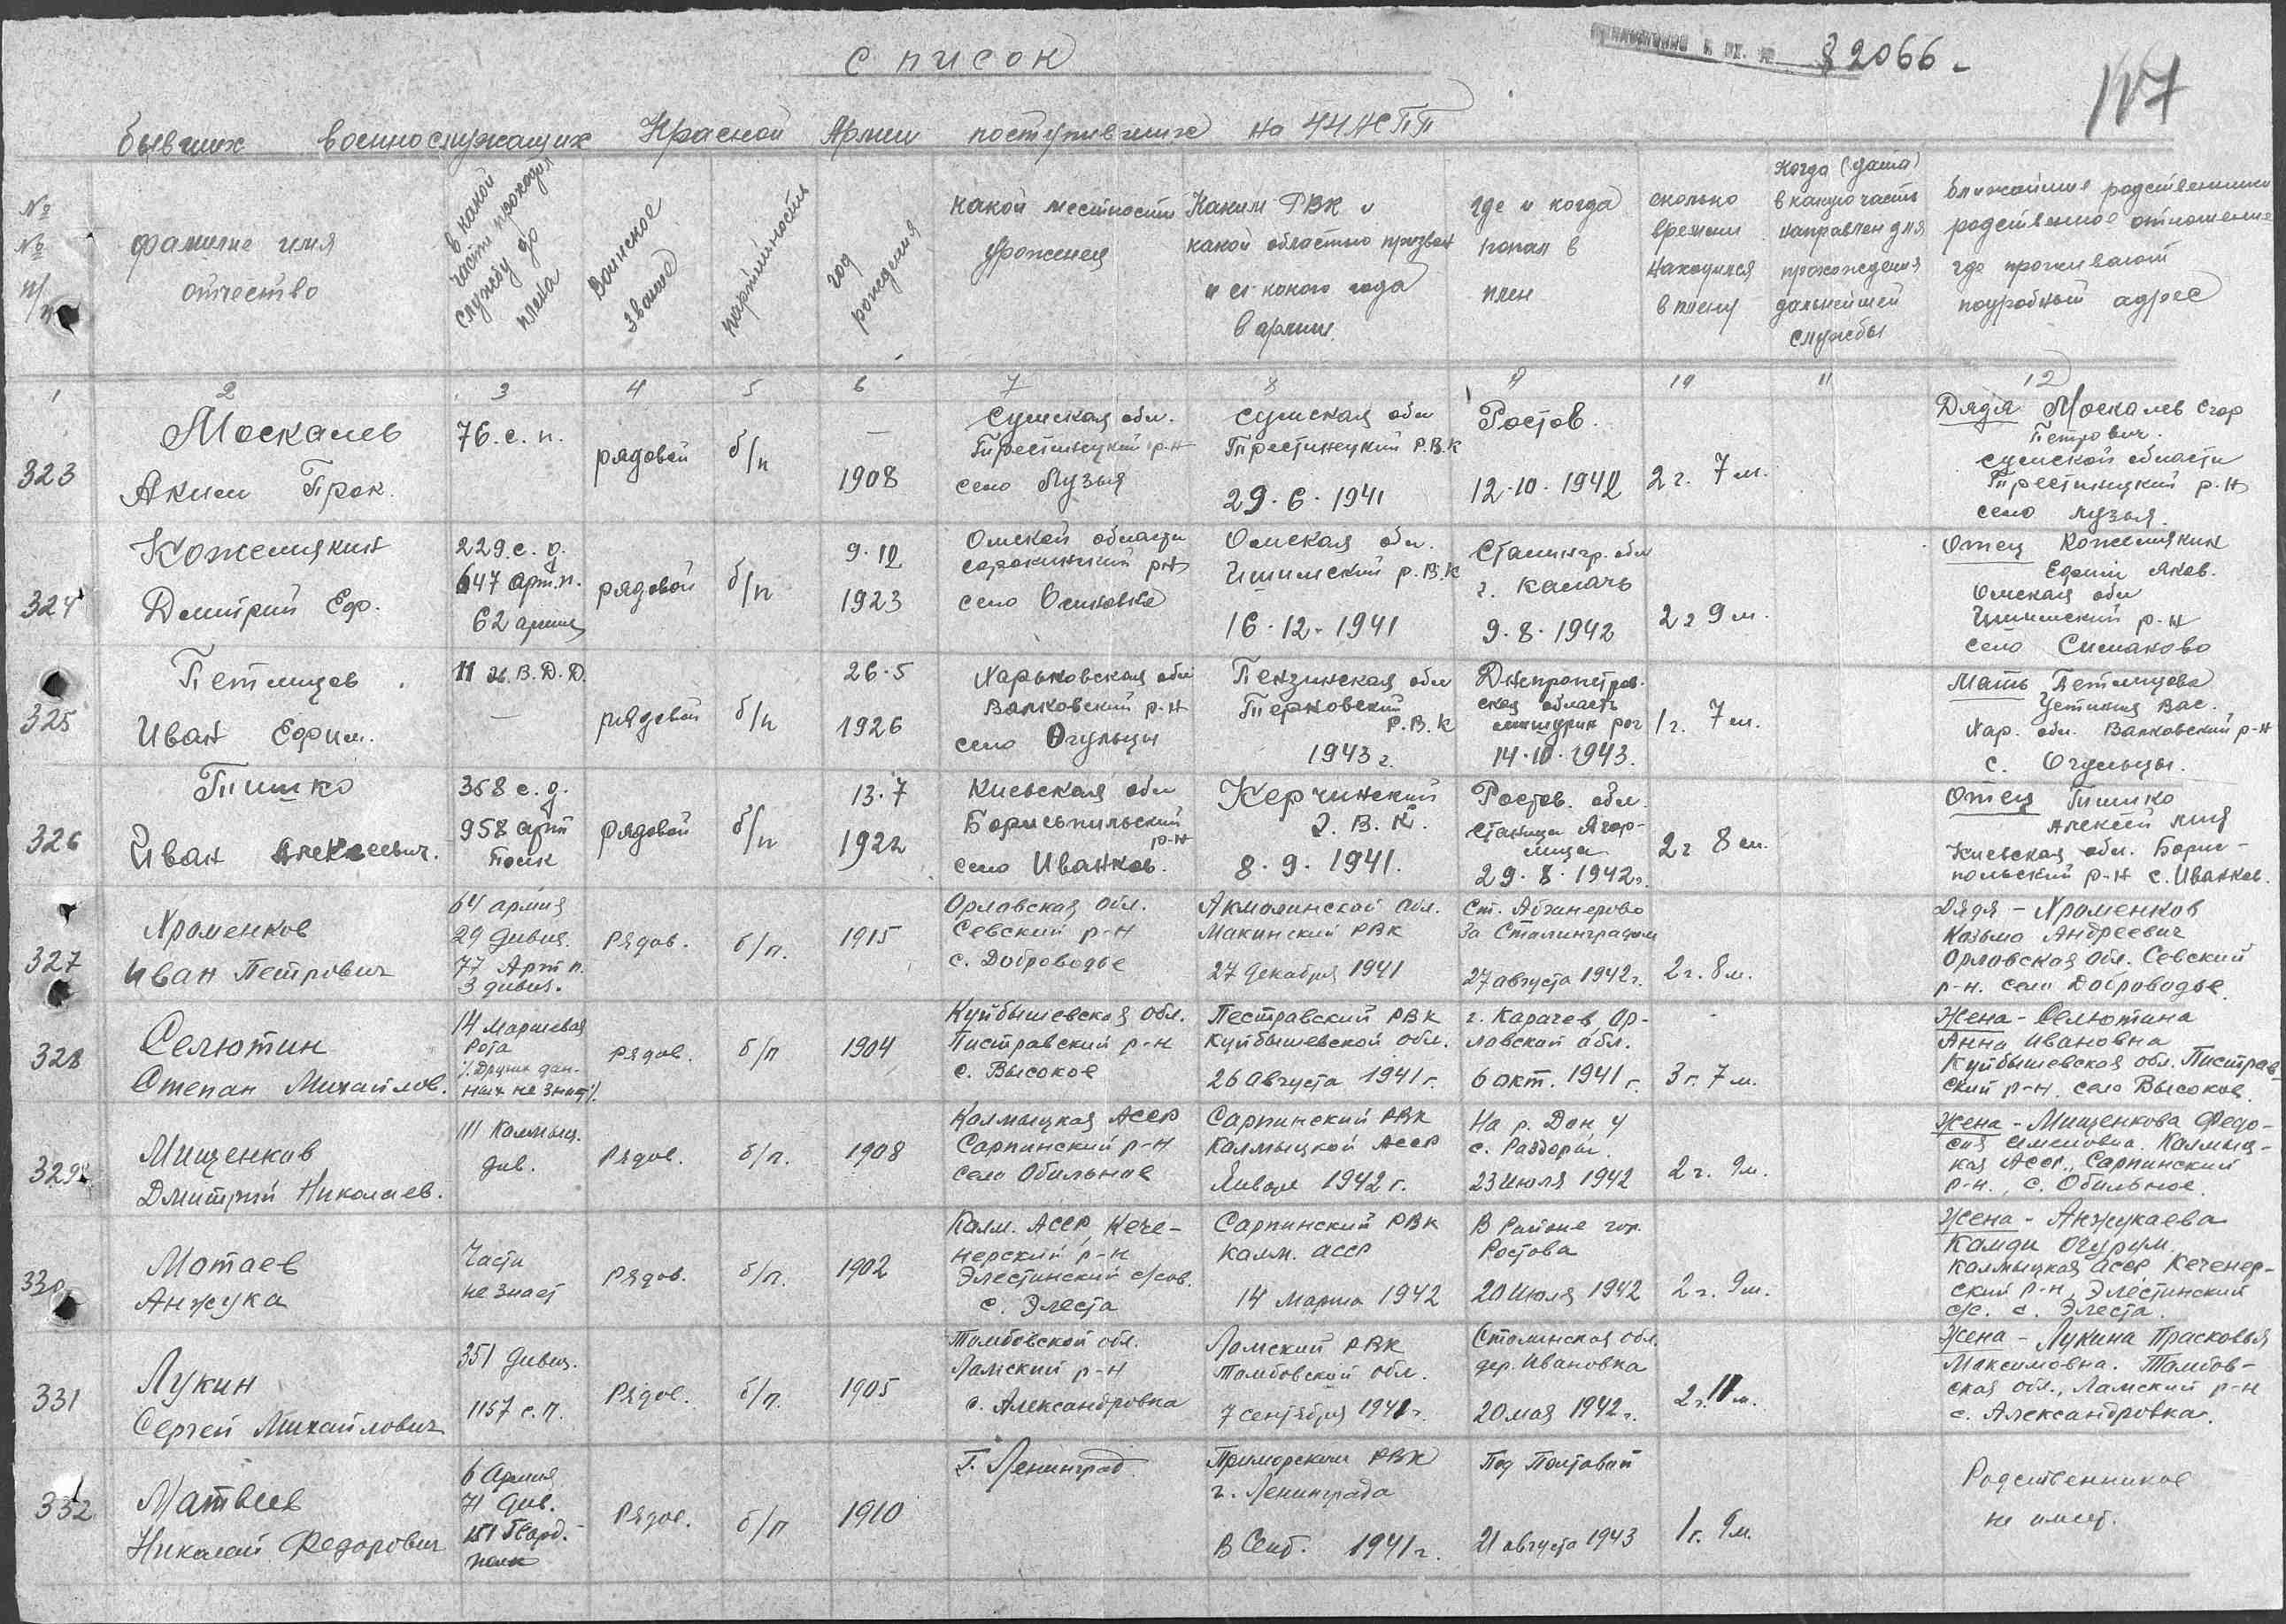 список
82066 -
117
бывших военнослужащих Красной Армии поступивших на 44 АСПП
№ № п/п
фамилие имя отчество
в какой части проходил службу до плена
Воинское звание
партийность
год рождения
какой местности уроженец
Каким РВК и какой областью призван и с какого года в армии.
где и когда попал в плен
сколько времени находился в плену
Когда (дата) в какую часть направлен для прохождения дальнейшей службы
ближайшие родственники родственное отношение где проживают подробный адрес
1 2 3 4 5 6 7 8 9 10 11 12
323
Москалев
Аким Прок.
76. с. п.
рядовой
б/п
—
1908
Сумская обл.
Тростинецкий р-н
село Лузыя
Сумская обл
Тростинецкий Р.В.К
29·6·1941
Ростов.
12·10·1942
2 г. 7 м.
Дядя Москалев Егор
Петрович.
Сумской области
Тростинецкий р-н
село Лузыя.
324
Кожемякин
Дмитрий Еф.
229. с. д.
647 арт.п.
62 армия
рядовой
б/п
9·12
1923
Омской области
Сорокинский р-н
село Осиновка
Омская обл.
Ишимский р.В.К
16·12·1941
Сталингр. обл
г. Калачь
9·8·1942
2 г 9 м.
Отец Кожемякин
Ефим Яков.
Омская обл
Ишимский р-н
село Симаново
325
Петлицев
Иван Ефим.
11 В.Д.Д.
—
рядовой
б/п
26·5
1926
Харьковская обл
Валковский р-н
село Огульцы
Пензинская обл
Терновский
Р.В.К
1943 г.
Днепропетров-
ская область
мишурин рог
14·10·1943.
1 г. 7 м.
Мать Петлицева
Устиния Вас.
Хар. обл. Валковский р-н
с. Огульцы.
326
Тишко
Иван Алексеевич.
358 с. д.
958 арт
Полк
рядовой
б/п
13·7
1922
Киевская обл
Бориспильский
р-н
село Иванков.
Керчинский
Г. В. К.
8·9·1941.
Ростов. обл.
29·8·1942г.
2 г 8 м.
Отец Тишко
Алексей
Киевская обл. Борис-
польский р-н с. Иванков.
327
Храменков
Иван Петрович
64 армия
29 дивиз.
77 Арт п.
3 дивиз.
Рядов.
б/п.
1915
Орловская обл.
Севский р-н
с. Доброводье
Акмолинской обл.
Макинский РВК
27 декабря 1941
Ст. Абганерово
За Сталинградом
27 августа 1942 г.
2 г. 8 м.
Дядя - Храменков
Козьма Андреевич
Орловская обл. Севский
р-н. село Доброводье.
328
Селютин
Степан Михайлов.
14 маршевая
рота
/. Других дан-
ных не знает/.
рядов.
б/п
1904
Куйбышевская обл.
Пистравский р-н
с. Высокое
Пестравский РВК
Куйбышевской обл.
26 августа 1941 г.
г. Карачев, Ор-
ловской обл.
6 окт. 1941 г.
3 г. 7 м.
Жена - Селютина
Анна Ивановна
Куйбышевская обл. Пистрав-
ский р-н. село Высокое.
329
Мищенков
Дмитрий Николаев.
111 Калмыц.
див.
Рядов.
б/п.
1908
Калмыцкая АССР
Сарпинский р-н
село Обильное
Сарпинский РВК
Калмыцкой АССР
Январе 1942 г.
На р. Дон у
с. Раздоры.
23 июля 1942
2 г. 9м.
Жена - Мищенкова Федо-
сия Семеновна. Калмыц-
кая АССР., Сарпинский
р-н., с. Обильное.
330
Мотаев
Анжука
Части
не знает
Рядов.
б/п.
1902
Калм. АССР, Кече-
нерский р-н
Элестинский с/сов.
с. Элеста
Сарпинский РВК
калм. АССР
14 марта 1942
В районе гор.
Ростова
20 июля 1942
2 г. 9м.
Жена - Анжукаева
Камди Очурум
Калмыцкая АССР Кеченер-
ский р-н, Элестинский
с/с. с. Элеста.
331
Лукин
Сергей Михайлович
351 дивиз.
1157 с. п.
Рядов.
б/п.
1905
Тамбовской обл.
Ламский р-н
с. Александровка
Ламский РВК
Тамбовской обл.
7 сентября 1941 г.
Сталинская обл.
дер. Ивановка
20 мая 1942 г.
2 г. 11 м.
Жена - Лукина Прасковья
Максимовна. Тамбов-
ская обл., Ламский р-н
с. Александровка.
332
Матвеев
Николай Федорович
6 Армия
71 див.
151 Гвард.
полк
Рядов.
б/п
1910
Г. Ленинград.
Приморским РВК
г. Ленинграда
В Сент. 1941 г.
Под Полтавой
21 августа 1943
1 г. 9 м.
Родственников
не имеет.